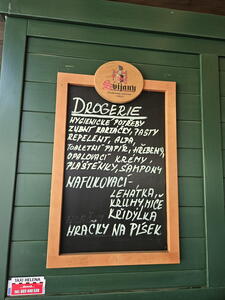 Svijany
DROGERIE
HYGIENICKÉ POTŘEBY
ZUBNÍ KARTÁČKY, PASTY
REPELENT, ALPA,
TOALETNÍ PAPÍR, HŘEBENY,
OPALOVACÍ KRÉMY,
PLÁŠTĚNKY, ŠAMPONY
NAFUKOVACÍ -
LEHÁTKA,
KRUHY, MÍČE
KŘIDÝLKA
HRAČKY NA PÍSEK
TAXI HELENA